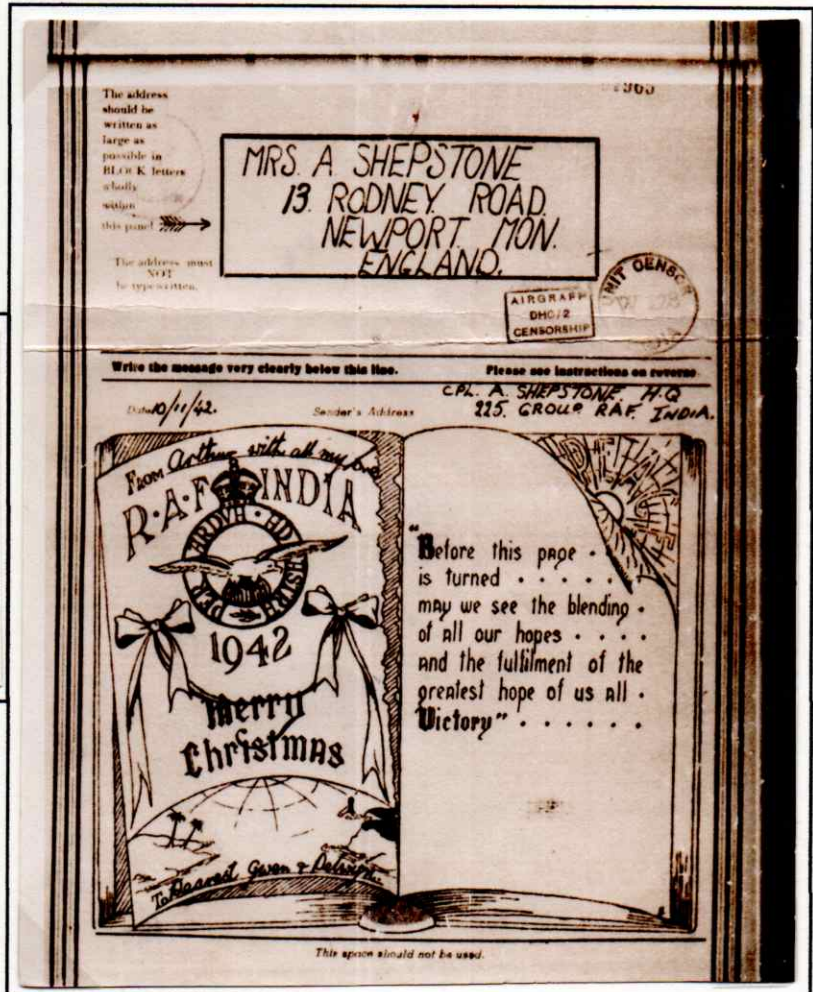 The address
should be
written as
large as
possible in
BLOCK letters
wholly
within
this panel
The address must
NOT
be typewritten.
MRS. A SHEPSTONE
13. RODNEY. ROAD.
NEWPORT. MON.
ENGLAND.
AIRGRAPH
DHC/2
CENSORSHIP
UNIT CENSOR
Write the message very clearly below this line.
Please see instructions on reverse
Date 10/11/42.
Sender's Address
CPL. A. SHEPSTONE. H.Q
225. GROUP. RAF. INDIA.
FROM Arthur with all my love
R·A·F INDIA
PER ARDVA AD ASTRA
1942
Merry
Christmas
To Dearest Gwen &
"Before this page ·
is turned · · · · ·
may we see the blending ·
of all our hopes · · · ·
and the fulfilment of the
greatest hope of us all ·
Victory" · · · · · ·
This space should not be used.